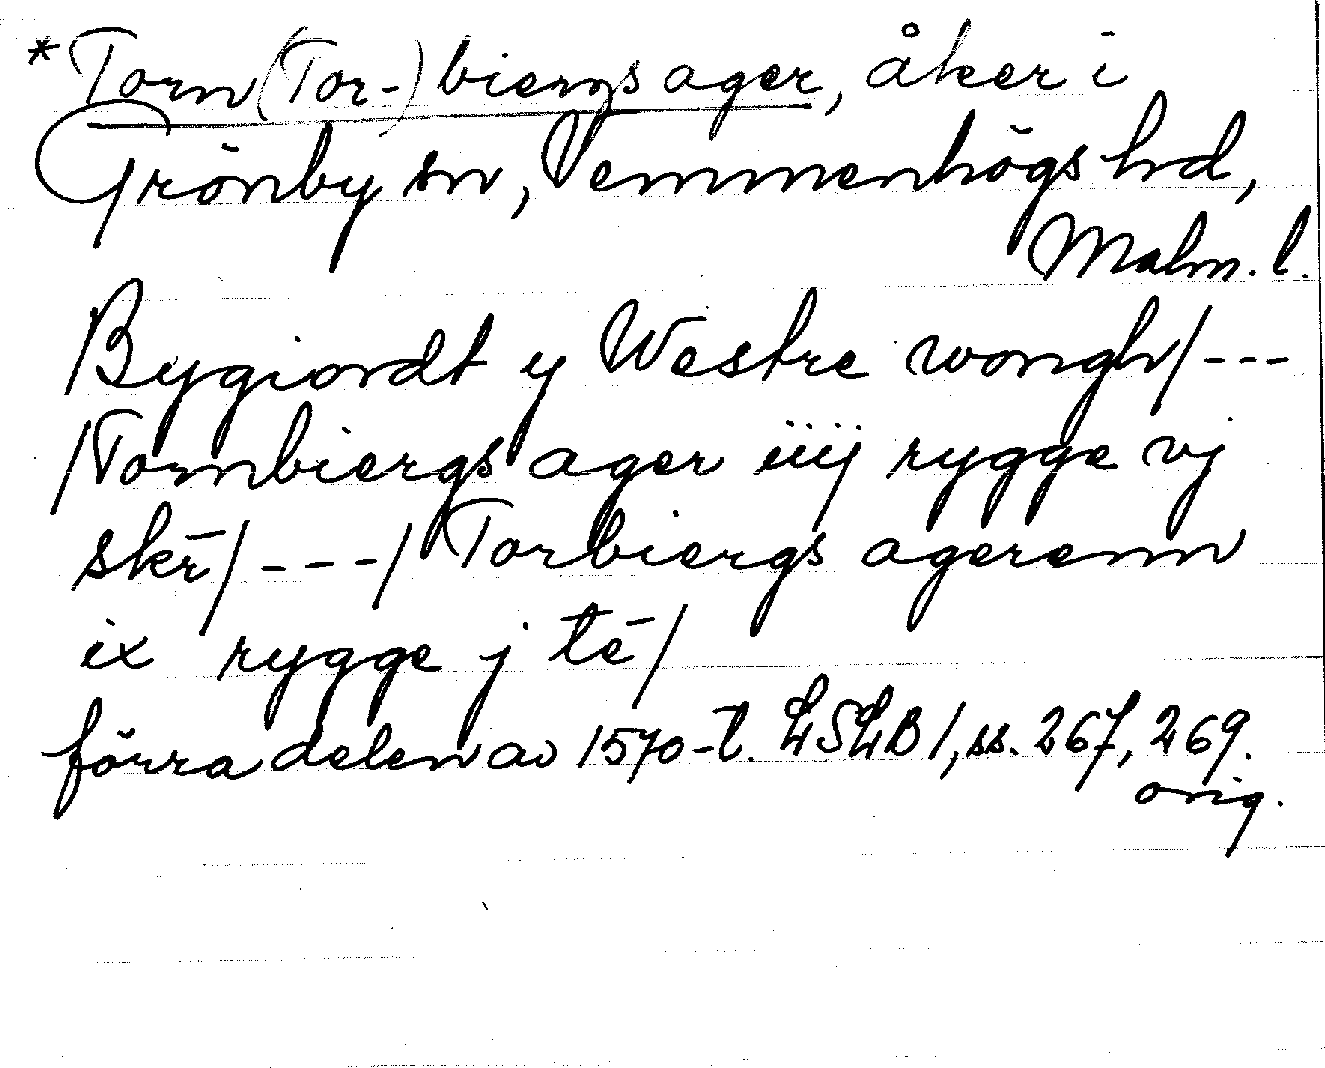 *Torn(Tor-)biergs ager, åker i
Grönby sn, Vemmenhögs hd,
Malm. l.
Bygiordt y Westre wongh/---
/Tornbiergs ager iiij rygge vj
skē/---/ Torbiergs agerenn
ix rygge j tē/
förra delen av 1570-t. LSLB 1, ss. 267, 269.
orig.